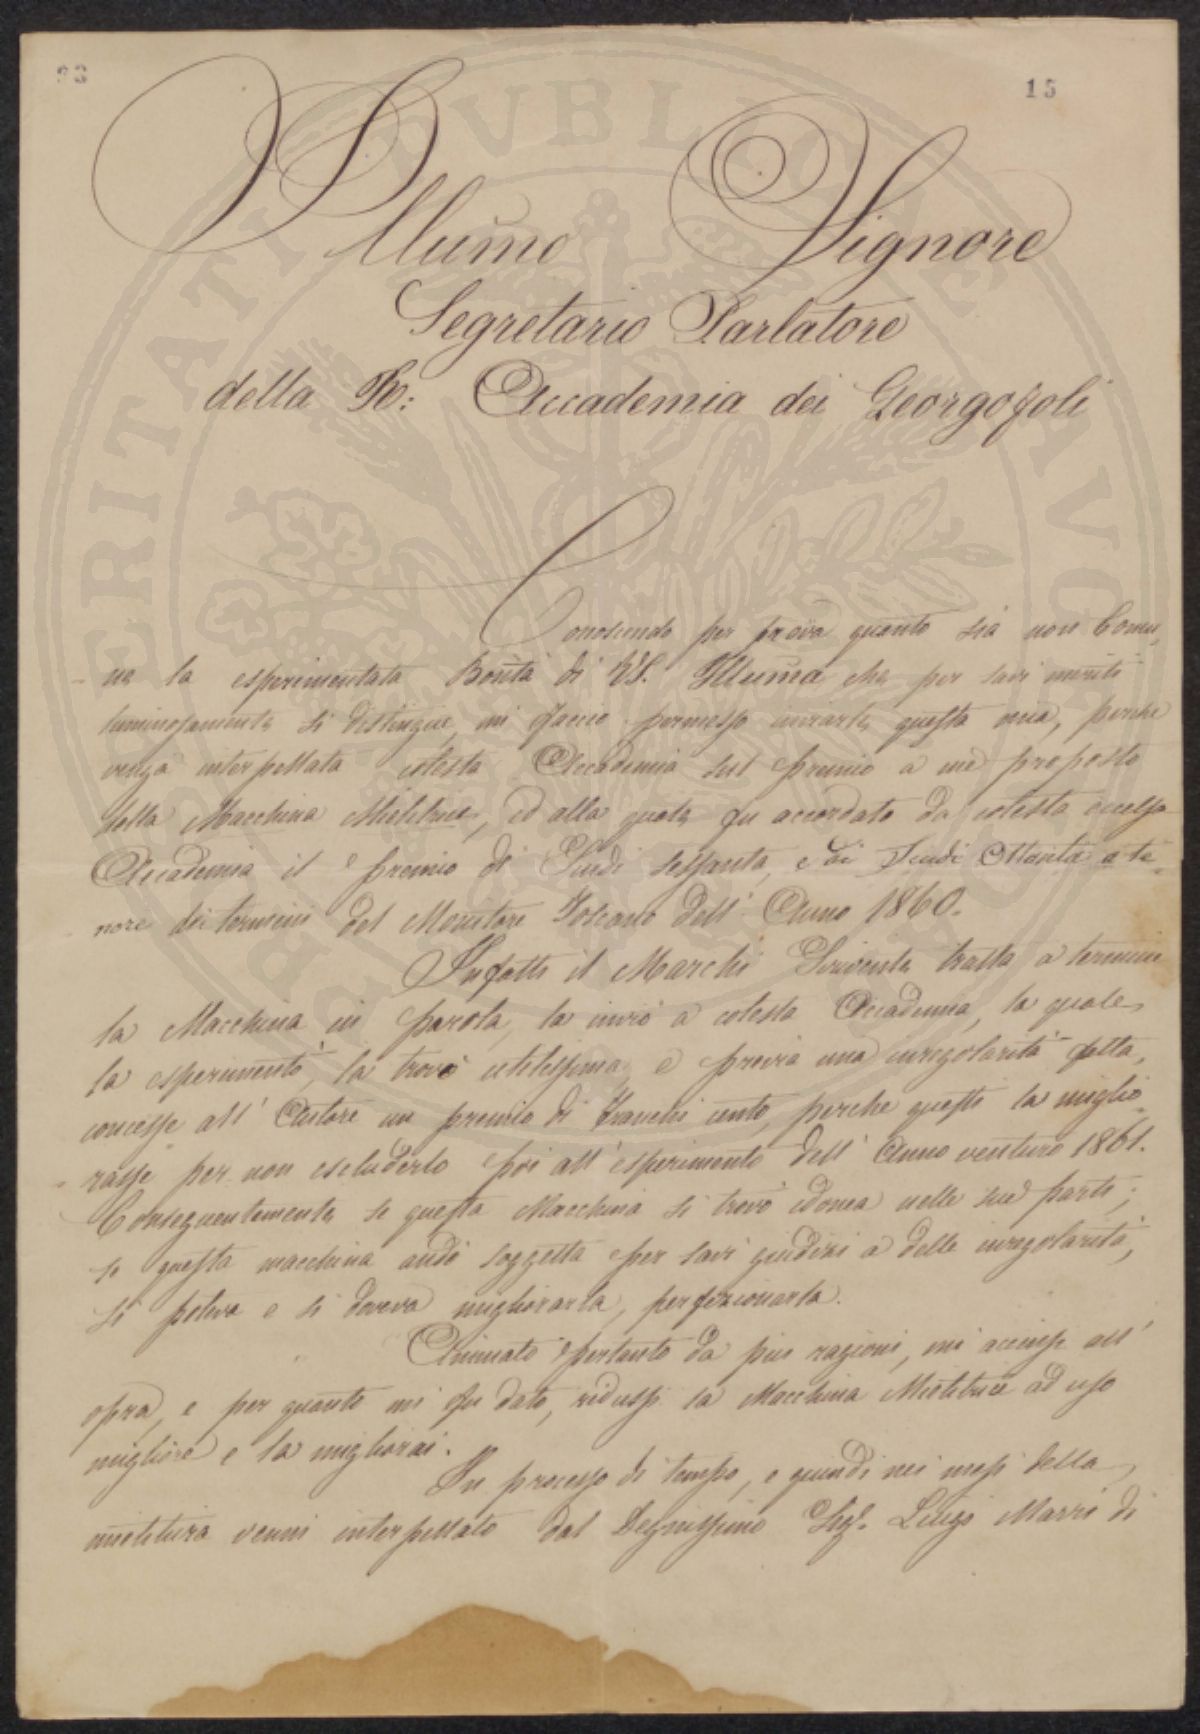 93
15
Illumo Signore
Segretario Parlatore
della R: Accademia dei Georgofoli
Conoscendo per prova quanto sia non Comu,
ne la esperimentata Bontà di VS. Illuma che per suoi meriti
luminosamente si distingue, mi faccio permesso inviarle questa mia, perchè
venga interpellata cotesta Accademia sul premio a me proposto
sulla Macchina Mietitrice, ed alla quale fu accordato da cotesta eccelsa
Accademia il premio di Scudi sessanta, e di Scudi Ottanta a te-
nore dei termini del Monitore Toscano dell' Anno 1860.
Infatti il Marchi Scrivente tratta a termine
la Macchina in parola, la inviò a cotesta Accademia, la quale
la esperimentò, la trovò utilissima e previa una irregolarità fatta,
concesse all' Autore un premio di Franchi cento, perche questi la miglio
rasse per non escluderlo poi all' esperimento dell' Anno venturo 1861.
Conseguentemente se questa Macchina si trovò idonea nelle sue parti;
se questa macchina andò soggetta per savi giudizi a delle irregolarità,
si poteva e si doveva migliorarla, perfezionarla.
Animato pertanto da più ragioni, mi accinsi all'
opra, e per quanto mi fu dato, ridussi la Macchina Mietitrice ad uso
migliore e la migliorai.
In processo di tempo, e quindi nei mesi della
mietitura venni interpellato dal Degnissimo Sigr. Luigi Marri di